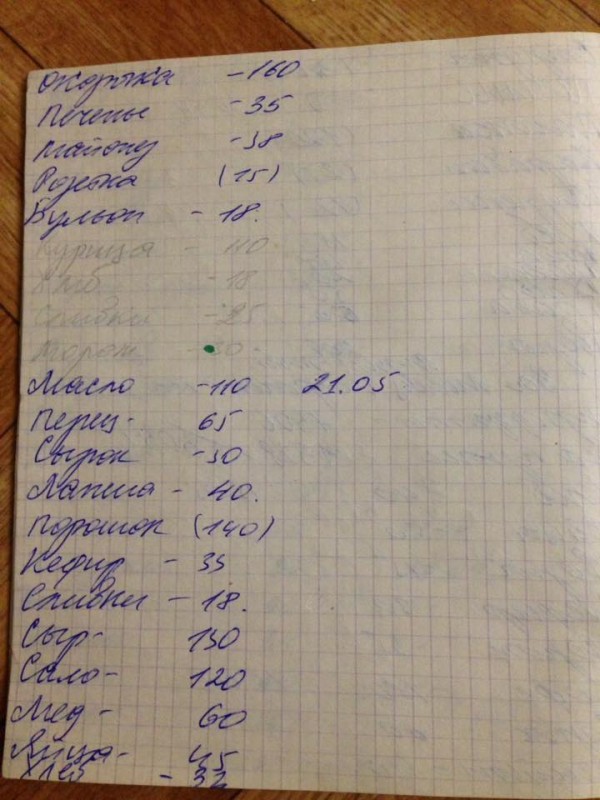 Окорочка -160
Печенье -35
Майонез -38
Розетка (15)
Бульон - 18.
Курица - 110
Хлеб - 18
Сливки - 25
Морож -
Масло -110 21.05
Перец - 65
Сырок -30
Лапша - 40.
Порошок (140)
Кефир - 35
Сливки - 18.
Сыр - 130
Сало - 120
Мед - 60
Яйца - 45
Хлеб - 32